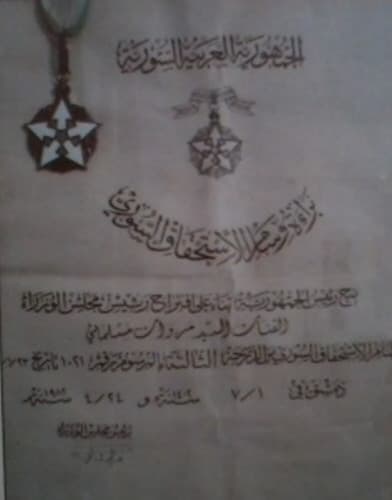 الجمهورية العربية السورية
براءة وسام الاستحقاق السوري
منح رئيس الجمهورية بناء على اقتراح رئيس مجلس الوزراء
الفنان السيد مروان مسلماني
وسام الاستحقاق السوري من الدرجة الثالثة بالمرسوم رقم ١٠٢١ تاريخ
دمشق في ٧/١ سنة و ٤/٢٤ سنة
رئيس مجلس الوزراء